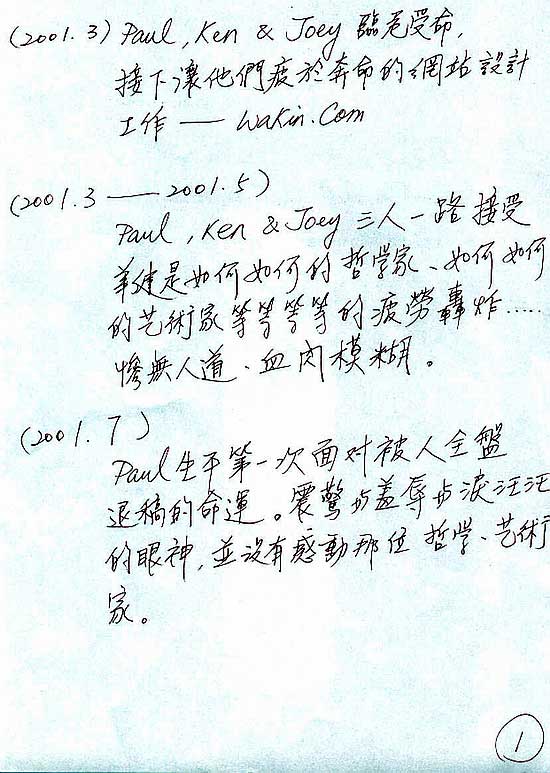 (2001.3) Paul, Ken & Joey 臨危受命,
接下讓他們疲於奔命的網站設計
工作 — Wakin.Com
(2001.3 — 2001.5)
Paul, Ken & Joey 三人一路接受
華健是如何如何的哲学家、如何如何
的艺術家等等等等的疲勞轟炸……
慘無人道、血肉模糊。
(2001.7)
Paul生平第一次面对被人全盤
退稿的命運。震驚与羞辱与淚汪汪
的眼神,並沒有感動那位哲学、艺術
家。
1